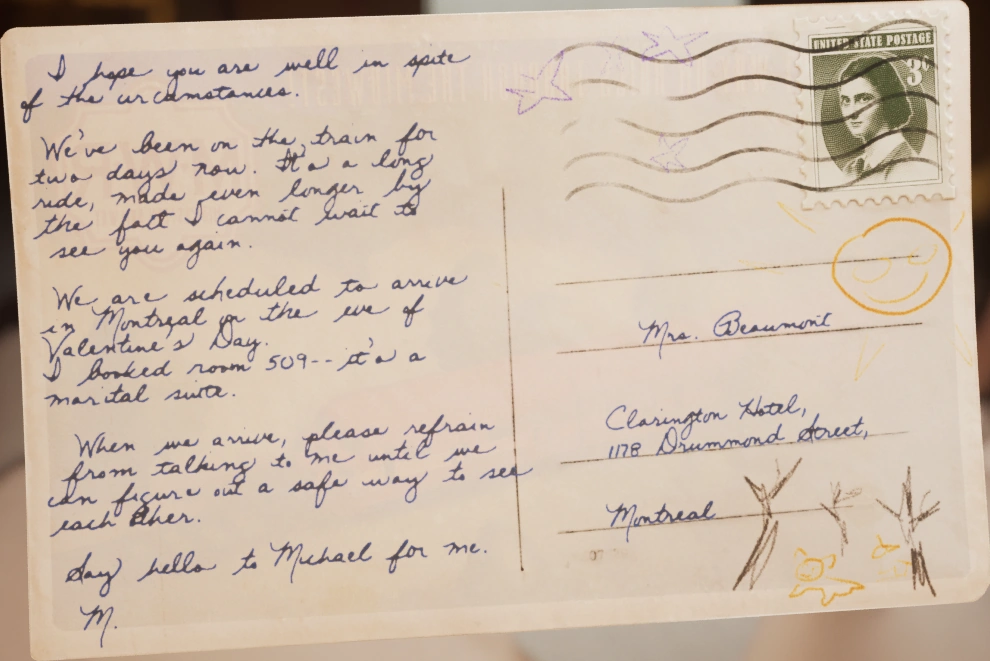 I hope you are well in spite
of the circumstances.
We've been on the train for
two days now. It's a long
ride, made even longer by
the fact I cannot wait to
see you again.
We are scheduled to arrive
in Montreal on the eve of
Valentine's Day.
I booked room 509-- it's a
marital suite.
When we arrive, please refrain
from talking to me until we
can figure out a safe way to see
each other.
Say hello to Michael for me.
M.
UNITED STATE POSTAGE
3¢
Mrs. Beaumont
Clarington Hotel,
1178 Drummond Street,
Montreal